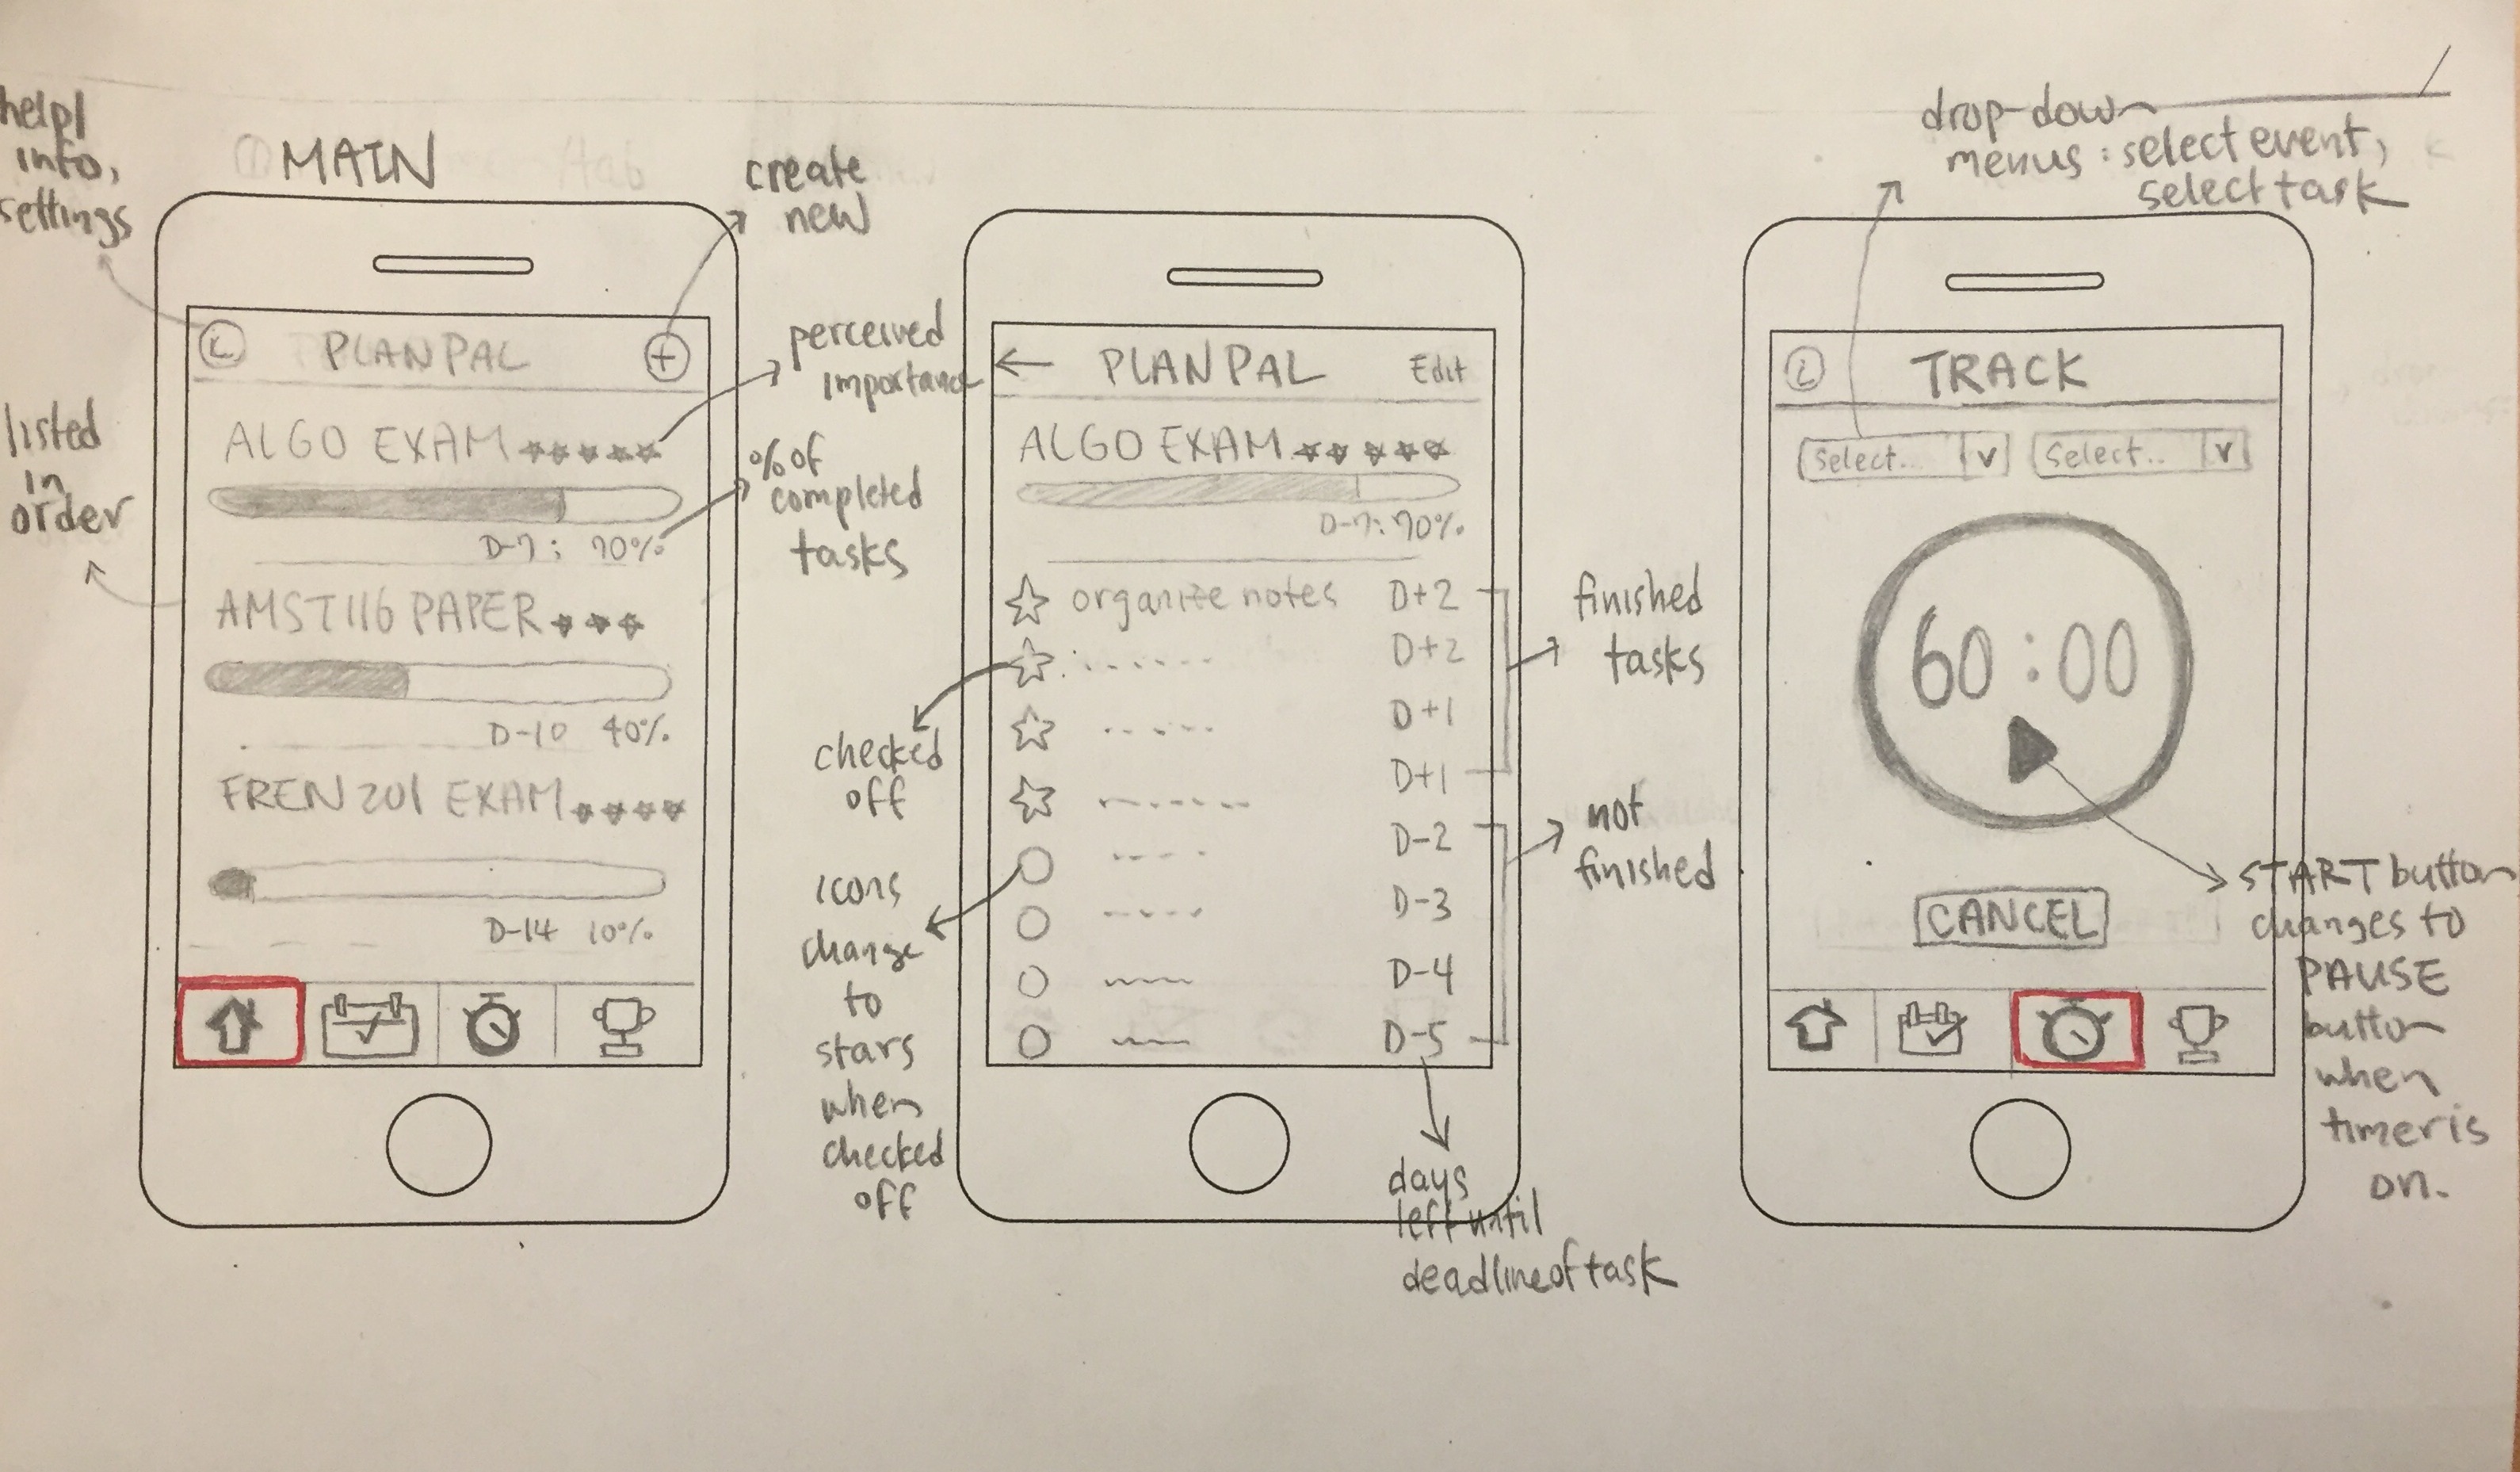 help/
info,
settings
MAIN
create
new
i PLANPAL +
perceived
importance
listed
in
order
ALGO EXAM ★★★★★
% of
completed
tasks
D-7: 70%
AMST116 PAPER ★★★
D-10 40%
FREN 201 EXAM ★★★★
D-14 10%
← PLANPAL Edit
ALGO EXAM ★★★★★
D-7: 70%
organize notes D+2
D+2
D+1
D+1
D-2
D-3
D-4
D-5
checked
off
icons
change
to
stars
when
checked
off
finished
tasks
not
finished
days
left until
deadline of task
drop-down
menus: select event,
select task
i TRACK
Select... v Select.. v
60:00
CANCEL
START button
changes to
PAUSE
button
when
timer is
on.